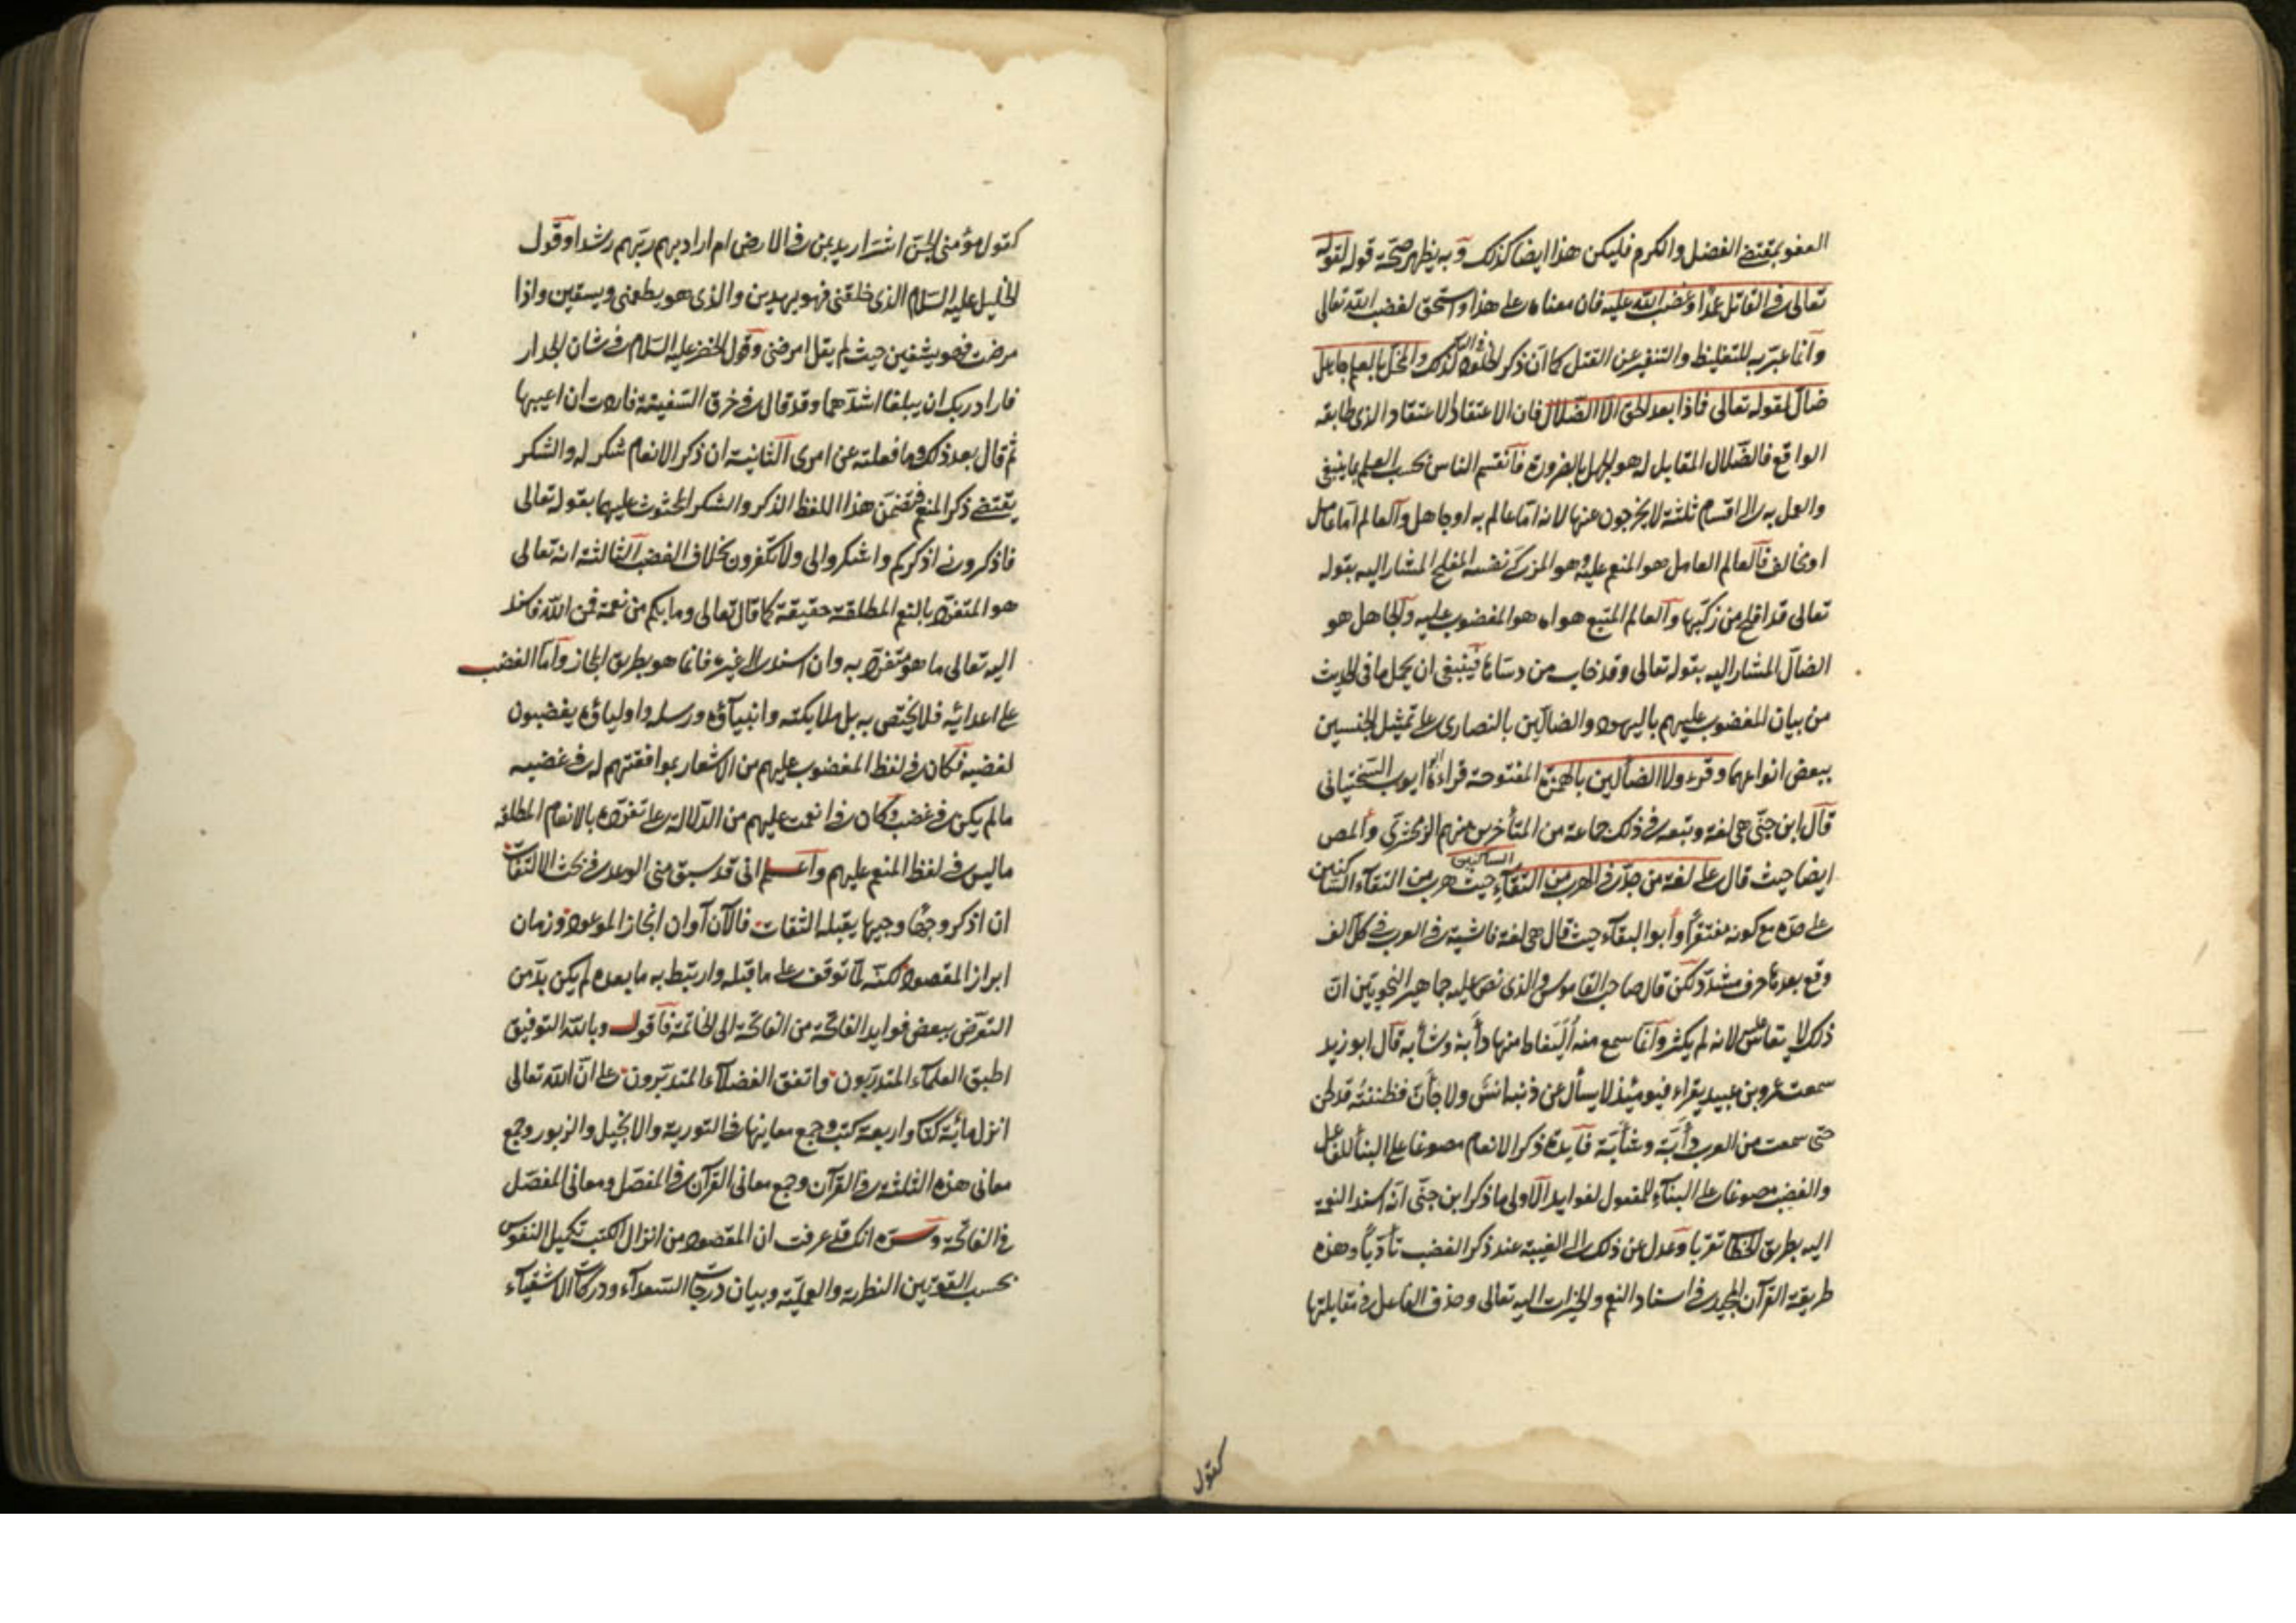 العفو بمقتضى الفضل والكرم فليكن هذا ايضا كذلك وبه يظهر صحة قوله لقوله
تعالى في القاتل عمدا وغضب الله عليه فان معناه على هذا واستحق لغضب الله تعالى
وانما عبّر به للتغليظ والتنفير عن القتل كما ان ذكر الخلود في النار كذلك والمخل بالعلم جاهل
ضالّ لقوله تعالى فماذا بعد الحق الا الضلال فان الاعتقاد الاعتقاد الذي طابقه
الواقع فالضّلال المقابل له هو الجهل بالضرورة فانقسم الناس بحسب العلم بما ينبغي
والعمل به الى اقسام ثلثة لا يخرجون عنها لانه اما عالم به او جاهل والعالم اما عامل
او مخالف فالعالم العامل هو المنعم عليه وهو المزكّي نفسه المفلح المشار اليه بقوله
تعالى قد افلح من زكّيها والعالم المتبع هواه هو المغضوب عليه والجاهل هو
الضالّ المشار اليه بقوله تعالى وقد خاب من دسّاها فينبغي ان يحمل ما في الحديث
من بيان المغضوب عليهم باليهود والضالّين بالنصارى على تمثيل الجنسين
ببعض انواعهما وقرء ولا الضألين بالهمزة المفتوحة قراءة ايوب السختياني
قال ابن جنّي هي لغة وتبعه في ذلك جماعة من المتأخرين منهم الزمخشري والمص
ايضا حيث قال على لغة من جدّ في الهرب من التقاء الساكنين حيث هرب من التقاء الساكنين
على حدّه مع كونه مغتفرا وأبو البقآء حيث قال هي لغة فاشية في العرب في كل الف
وقع بعدها حرف مشدّد لكن قال صاحب القاموس والذي نص عليه جماهير النحويين انّ
ذلك لا يقاس عليه لانه لم يكثر وانما سمع منه أُلَيْفاظ منها دأبة وشأبة قال ابو زيد
سمعت عمرو بن عبيد يقراء فيومئذ لا يسأل عن ذنبه انس ولا جأنّ فظننته قد لحن
حتى سمعت من العرب دأبّة وشأبّة فايدة ذكر الانعام مصوغا على البناء للفاعل
والغضب مصوغا على البنآء للمفعول لفوايد الاولى ما ذكر ابن جنّي انّه اسند النعمة
اليه بطريق الخطاب تقربا وعدل عن ذلك الى الغيبة عند ذكر الغضب تأدّبا وهذه
طريقة القرآن المجيد في اسناد النعم والخيرات اليه تعالى وحذف الفاعل في مقابلتها
كقول
كقول مؤمني الجنّ اشرّ اريد بمن في الارض ام اراد بهم ربّهم رشدا وقول
الخليل عليه السّلام الذي خلقني فهو يهدين والذي هو يطعمني ويسقين واذا
مرضت فهو يشفين حيث لم يقل امرضني وقول الخضر عليه السّلام في شان الجدار
فاراد ربك ان يبلغا اشدّهما وقد قال في خرق السّفينة فاردت ان اعيبها
ثم قال بعد ذلك وما فعلته عن امري الثّانية ان ذكر الانعام شكر له والشكر
يقتضي ذكر المنعم فتضمّن هذا اللفظ الذكر والشكر المحثوث عليهما بقوله تعالى
فاذكروني اذكركم واشكروا لي ولا تكفرون بخلاف الغضب الثالثة انه تعالى
هو المتفرّد بالنعم المطلقة حقيقة كما قال تعالى وما بكم من نعمة فمن الله فاسند
اليه تعالى ما هو متفرّد به وان اسند الى غيره فانما هو بطريق المجاز وامّا الغضب
على اعدائه فلا يختص به بل ملايكته وانبيآؤه ورسله واولياؤه يغضبون
لغضبه فكان في لفظ المغضوب عليهم من الاشعار بموافقتهم له في غضبه
مالم يكن في غضب وكان في انعمت عليهم من الدّلالة على تفرّده بالانعام المطلقة
ما ليس في لفظ المنعم عليهم واعلم اني قد سبق مني الوعد في بحث الالتفات
ان اذكر وجها وجيها يقبله الثقات فالآن آوان انجاز الموعود وزمان
ابراز المقصود لكنّه لمّا توقف على ما قبله وارتبط به ما بعده لم يكن بدّ من
التعرّض ببعض فوايد الفاتحة من الفاتحة الى الخاتمة فاقول وبالله التوفيق
اطبق العلمآء المتدرّبون واتفق الفضلآء المتدبّرون على انّ الله تعالى
انزل مائة كتاب واربعة كتب وجمع معانيها في التورية والانجيل والزبور وجمع
معاني هذه الثلثة في القرآن وجمع معاني القرآن في المفصّل ومعاني المفصّل
في الفاتحة وسرّه انك قد عرفت ان المقصود من انزال الكتب تكميل النفوس
بحسب القوّتين النظرية والعمليّة وبيان درجات السّعدآء ودركات الاشقيآء